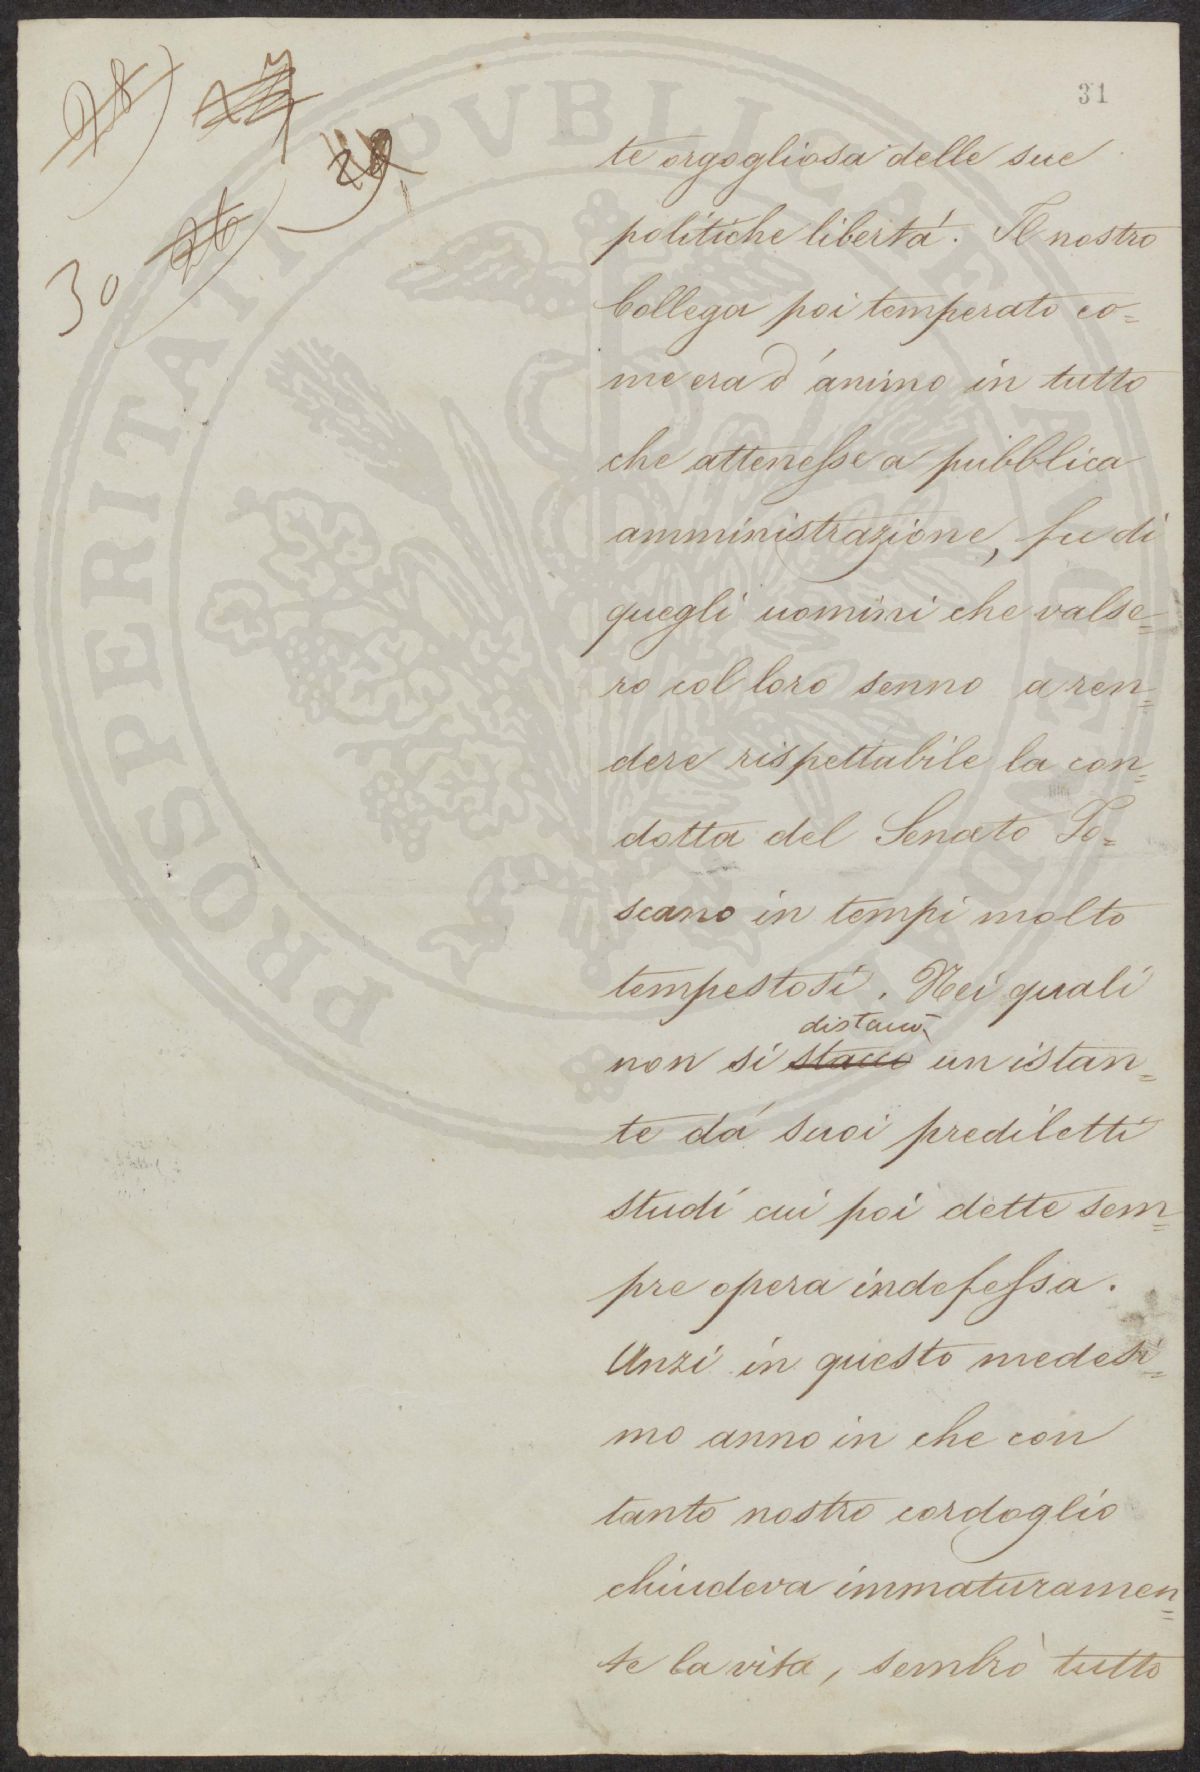 31
30
te orgogliosa delle sue
politiche libertá. Il nostro
Collega poi temperato co=
me era d'animo in tutto
che attenesse a pubblica
amministrazione, fu di
quegli uomini che valse=
ro col loro senno a ren=
dere rispettabile la con=
dotta del Senato To=
scano in tempi molto
tempestosi. Nei quali
distaccò
non si stacco un istan=
te dá suoi prediletti
studi cui poi dette sem=
pre opera indefessa.
Anzi in questo medesi=
mo anno in che con
tanto nostro cordoglio
chiudeva immaturamen=
te la vita, sembrò tutto
PROSPERITATI PVBLICAE AVGENDAE